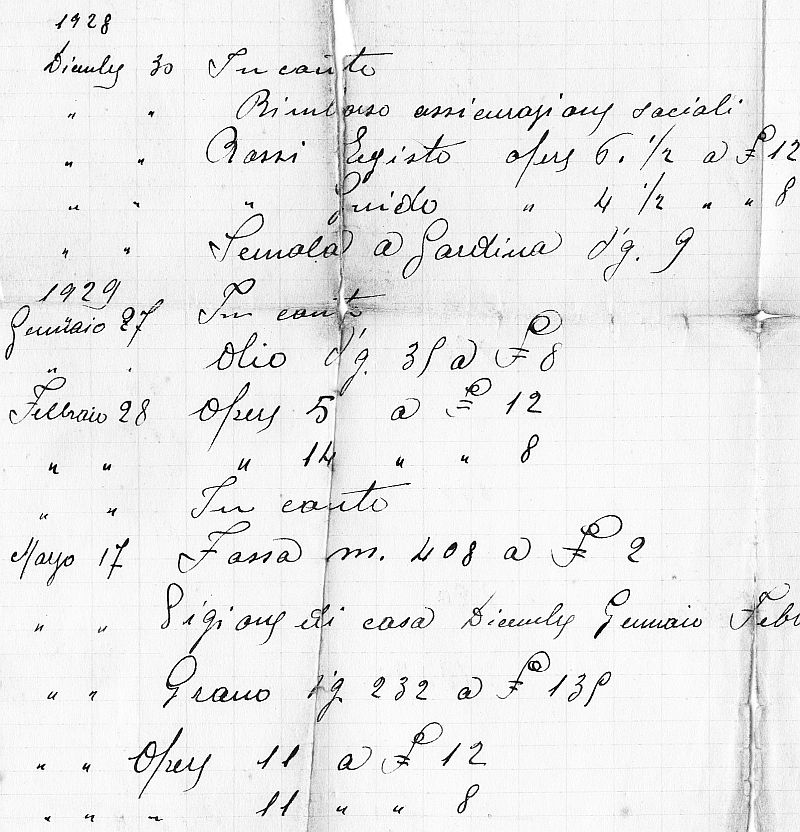 1928
Dicembre 30 In conto
" " Rimborso assicurazione sociali
" " Rossi Egisto opere 6. 1/2 a £ 12
" " " Guido " 4 1/2 " " 8
" " Semola a Gardina Kg. 9
1929
Gennaio 27 In conto
" " Olio Kg. 35 a £ 8
Febbraio 28 Opere 5 a £ 12
" " " 14 " " 8
" " In conto
Marzo 17 Fossa m. 408 a £ 2
" " Pigione di casa Dicembre Gennaio Febb
" " Grano Kg. 232 a £ 135
" " Opere 11 a £ 12
" " " 11 " " 8